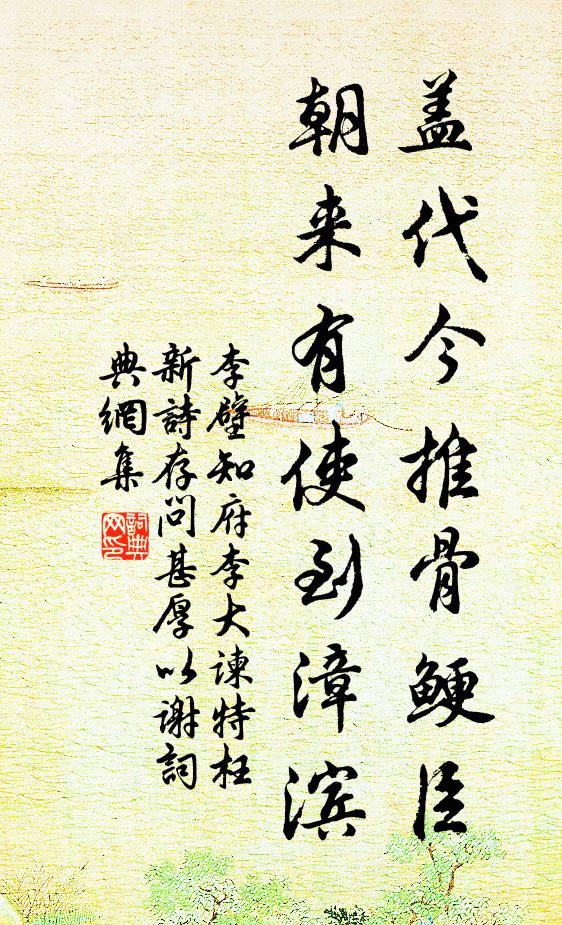 盖代今推骨鲠臣
朝来有使到漳滨
李壁知府李大谏特枉
新詩存问甚厚以谢詞
典網集
詞典
网印